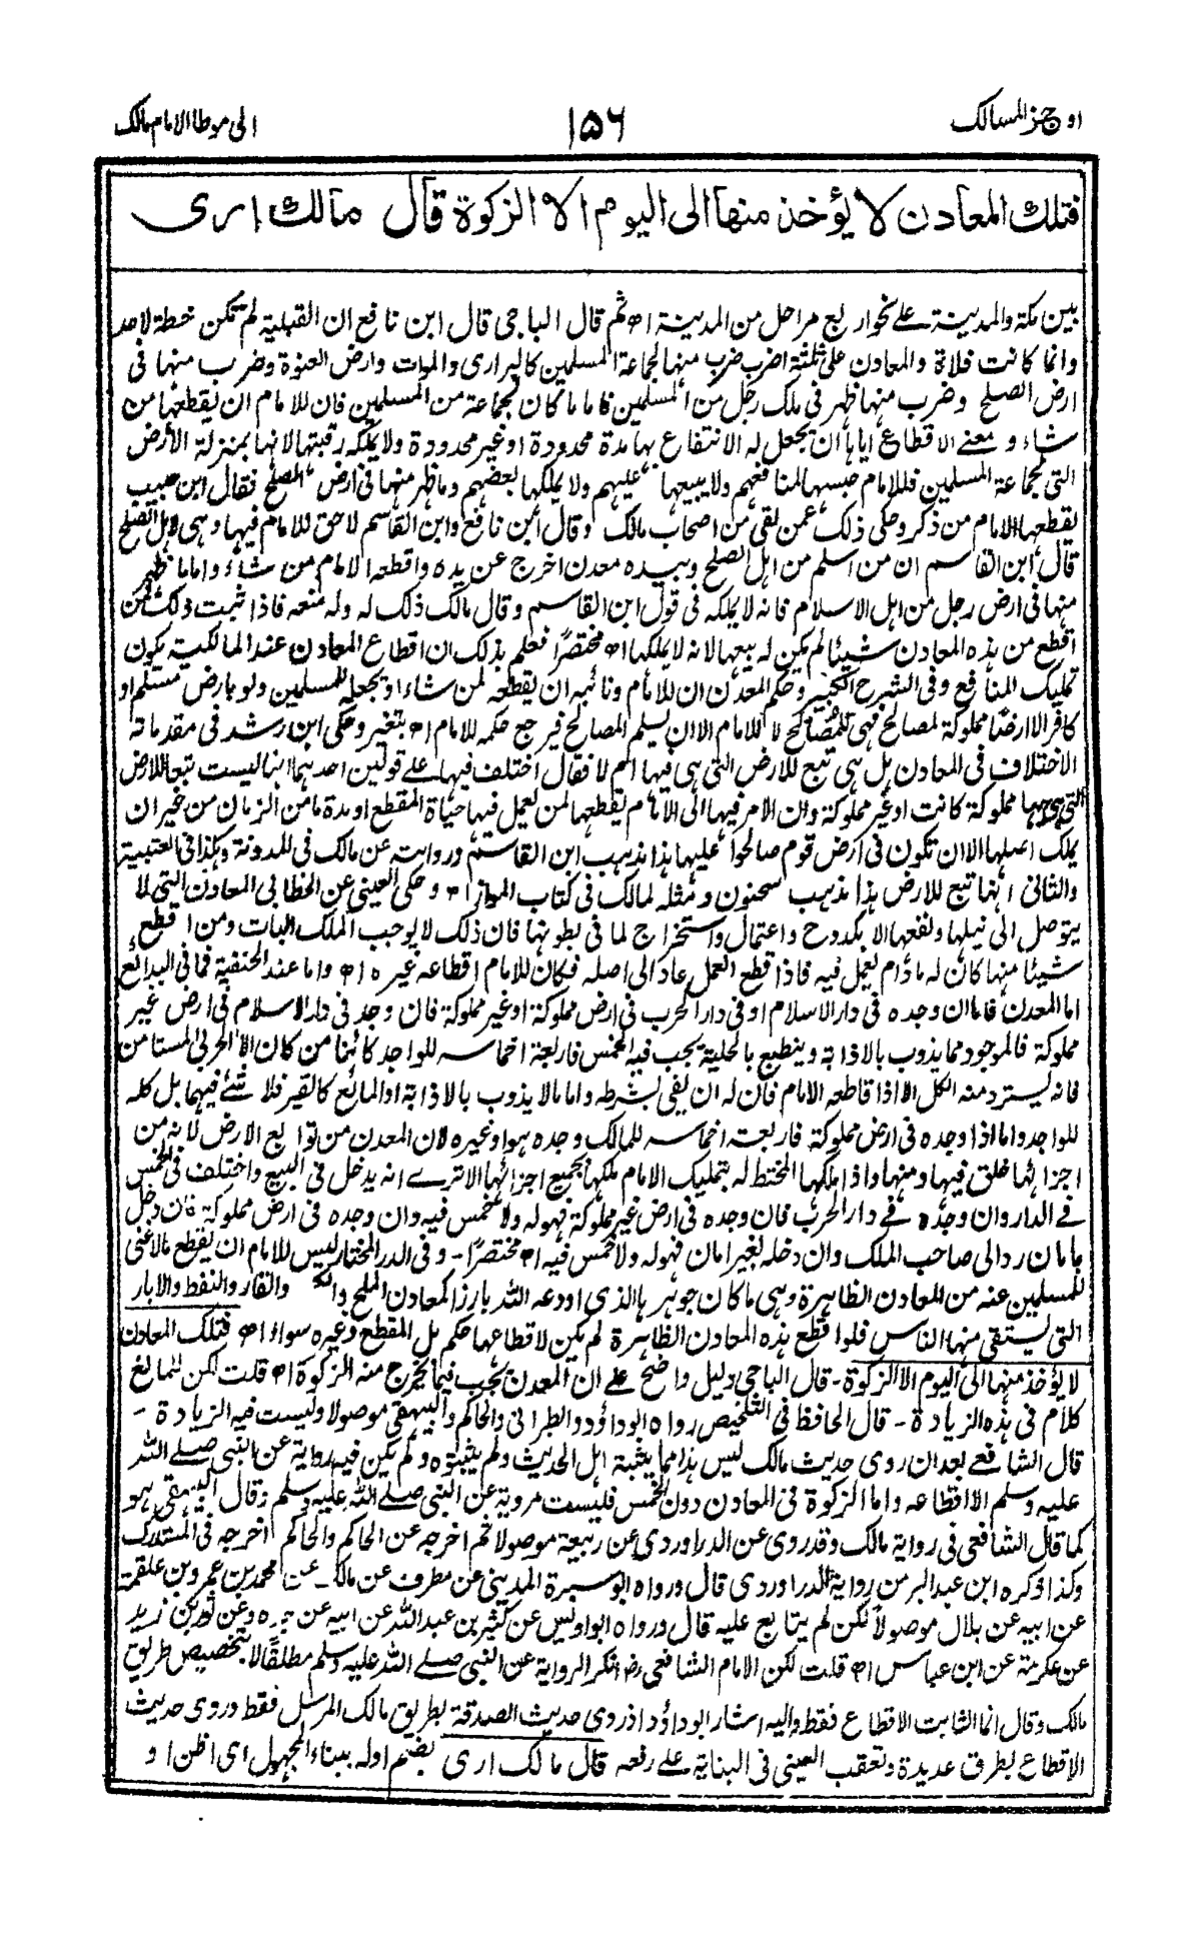 اوجز المسالك
١٥٦
الى موطا الامام مالك
فتلك المعادن لا يؤخذ منها الى اليوم الا الزكوة قال مالك ارى
بين مكة والمدينة على نحو اربع مراحل من المدينة اھ ثم قال الباجى قال ابن نافع ان القبلية لم تكن خطة لاحد
وانما كانت فلاة والمعادن على ثلثة اضرب ضرب منها لجماعة المسلمين كالبرارى والموات وارض العنوة وضرب منها فى
ارض الصلح وضرب منها ظهر فى ملك رجل من المسلمين فاما ما كان لجماعة من المسلمين فان للامام ان يقطعها من
شاء ومعنى الاقطاع اياها ان يجعل له الانتفاع بها مدة محدودة او غير محدودة ولا يملكه رقبتها لانها بمنزلة الارض
التى لجماعة المسلمين فللامام حبسها لمنافعهم ولا يبيعها عليهم ولا يملكها بعضهم وما ظهر منها فى ارض الصلح فقال ابن حبيب
يقطعها الامام من ذكر وحكى ذلك عمن لقى من اصحاب مالك وقال ابن نافع وابن القاسم لا حق للامام فيها وهى لاهل الصلح
قال ابن القاسم ان من اسلم من اهل الصلح وبيده معدن اخرج عن يده واقطعه الامام من شاء واما ما ظهر
منها فى ارض رجل من اهل الاسلام فانه لا يملكه فى قول ابن القاسم وقال مالك ذلك له وله منعه فاذا ثبت ذلك فمن
اقطع من هذه المعادن شيئا لم يكن له بيعها لانه لا يملكها اھ مختصرًا فعلم بذلك ان اقطاع المعادن عند المالكية يكون
تمليك المنافع وفى الشرح الكبير وحكم المعدن ان للامام ونائبه ان يقطعه لمن شاء او يجعله للمسلمين ولو بارض مسلم او
كافر الا ارضًا مملوكة لمصالح فهى للمصالح لا للامام الا ان يسلم المصالح فيرجع حكمه للامام اھ بتغير وحكى ابن رشد فى مقدماته
الاختلاف فى المعادن بل هى تبع للارض التى هى فيها ام لا فقال اختلف فيها على قولين احدهما انها ليست بتبع للارض
التى هى بها مملوكة كانت او غير مملوكة وان الامر فيها الى الامام يقطعها لمن يعمل فيها حياة المقطع او مدة ما من الزمان من غير ان
يملك اصلها الا ان تكون فى ارض قوم صالحوا عليها هذا مذهب ابن القاسم وروايته عن مالك فى المدونة وهكذا فى العتبية
والثانى انها تبع للارض هذا مذهب سحنون ومثله لمالك فى كتاب الموازاھ وحكى العينى عن الخطابى المعادن التى لا
يتوصل الى نيلها ونفعها الا بكدوح واعتمال واستخراج لما فى بطونها فان ذلك لا يوجب الملك البات ومن اقطع
شيئا منها كان له ما دام يعمل فيه فاذا قطع العمل عاد الى اصله فكان للامام اقطاعه غيره اھ واما عند الحنفية فما فى البدائع
اما المعدن فاما ان وجده فى دار الاسلام او فى دار الحرب فى ارض مملوكة او غير مملوكة فان وجد فى دار الاسلام فى ارض غير
مملوكة فالموجود مما يذوب بالاذابة وينطبع بالحلية يجب فيه الخمس فاربعة اخماسه للواجد كائنا من كان الا الحربى المستامن
فانه يسترد منه الكل الا اذا قاطعه الامام فان له ان يفى بشرطه واما ما لا يذوب بالاذابة او المائع كالقير فلا شئ فيهما بل كله
للواجد واما اذا وجده فى ارض مملوكة فاربعة اخماسه للمالك وجده هو او غيره لان المعدن من توابع الارض لانه من
اجزائها خلق فيها ومنها واذا ملكها المختط له بتمليك الامام ملكها بجميع اجزائها الا ترى انه يدخل فى البيع واختلف فى الخمس
فى الدار وان وجده فى دار الحرب فان وجده فى ارض غير مملوكة فهو له ولا خمس فيه وان وجده فى ارض مملوكة فان دخل
بامان رد الى صاحب الملك وان دخله بغير امان فهو له ولا خمس فيه اھ مختصرًا - وفى الدر المختار ليس للامام ان يقطع ما لا غنى
للمسلمين عنه من المعادن الظاهرة وهى ما كان جوهرها الذى اودعه الله بارزا كمعادن الملح والكحل والقار والنفط والابار
التى يستقى منها الناس فلو اقطع هذه المعادن الظاهرة لم يكن لاقطاعها حكم بل المقطع وغيره سواء اھ فتلك المعادن
لا يؤخذ منها الى اليوم الا الزكوة - قال الباجى دليل واضح على ان المعدن يجب فيما يخرج منه الزكوة اھ قلت لكن للمانع
كلام فى هذه الزيادة - قال الحافظ فى التلخيص رواه ابوداؤد والطبرانى والحاكم والبيهقى موصولا وليست فيه الزيادة -
قال الشافعى بعد ان روى حديث مالك ليس هذا مما يثبته اهل الحديث ولم يثبتوه ولم يكن فيه رواية عن النبى صلى الله
عليه وسلم الا اقطاعه واما الزكوة فى المعادن دون الخمس فليست مروية عن النبى صلى الله عليه وسلم وقال البيهقى هو
كما قال الشافعى فى رواية مالك وقد روى عن الدراوردى عن ربيعة موصولا ثم اخرجه عن الحاكم والحاكم اخرجه فى المستدرك
وكذا ذكره ابن عبد البر من رواية الدراوردى قال ورواه ابو سبرة المدينى عن مطرف عن مالك عن محمد بن عمرو بن علقمة
عن ابيه عن بلال موصولا لكن لم يتابع عليه قال ورواه ابو اويس عن كثير بن عبد الله عن ابيه عن جده وعن ثور بن زيد
عن عكرمة عن ابن عباس اھ قلت لكن الامام الشافعى رض انكر الرواية عن النبى صلى الله عليه وسلم مطلقًا لا بتخصيص طريق
مالك وقال انما الثابت الاقطاع فقط واليه اشار ابوداؤد اذ روى حديث الصدقة بطريق مالك المرسل فقط وروى حديث
الاقطاع بطرق عديدة وتعقب العينى فى البناية على رفعه قال مالك ارى بضم اوله ببناء المجهول اى اظن او